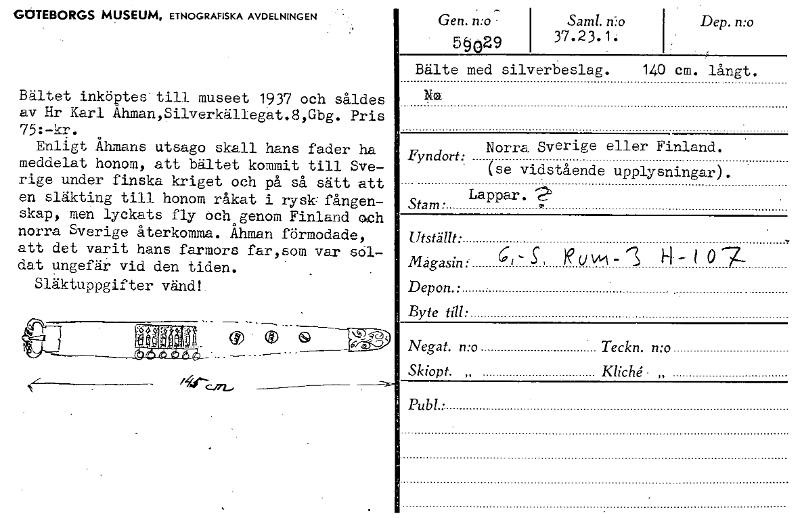 GÖTEBORGS MUSEUM, ETNOGRAFISKA AVDELNINGEN
Bältet inköptes till museet 1937 och såldes
av Hr Karl Åhman,Silverkällegat.8,Gbg. Pris
75:-kr.
Enligt Åhmans utsago skall hans fader ha
meddelat honom, att bältet kommit till Sve-
rige under finska kriget och på så sätt att
en släkting till honom råkat i rysk fången-
skap, men lyckats fly och genom Finland och
norra Sverige återkomma. Åhman förmodade,
att det varit hans farmors far,som var sol-
dat ungefär vid den tiden.
Släktuppgifter vänd!
145 cm
Gen. n:o Saml. n:o Dep. n:o
59029 37.23.1.
Bälte med silverbeslag. 140 cm. långt.
No
Fyndort: Norra Sverige eller Finland.
(se vidstående upplysningar).
Stam: Lappar. ?
Utställt:
Magasin: G.-S. Rum-3 H-107
Depon.:
Byte till:
Negat. n:o Teckn. n:o
Skiopt. „ Kliché „
Publ.: